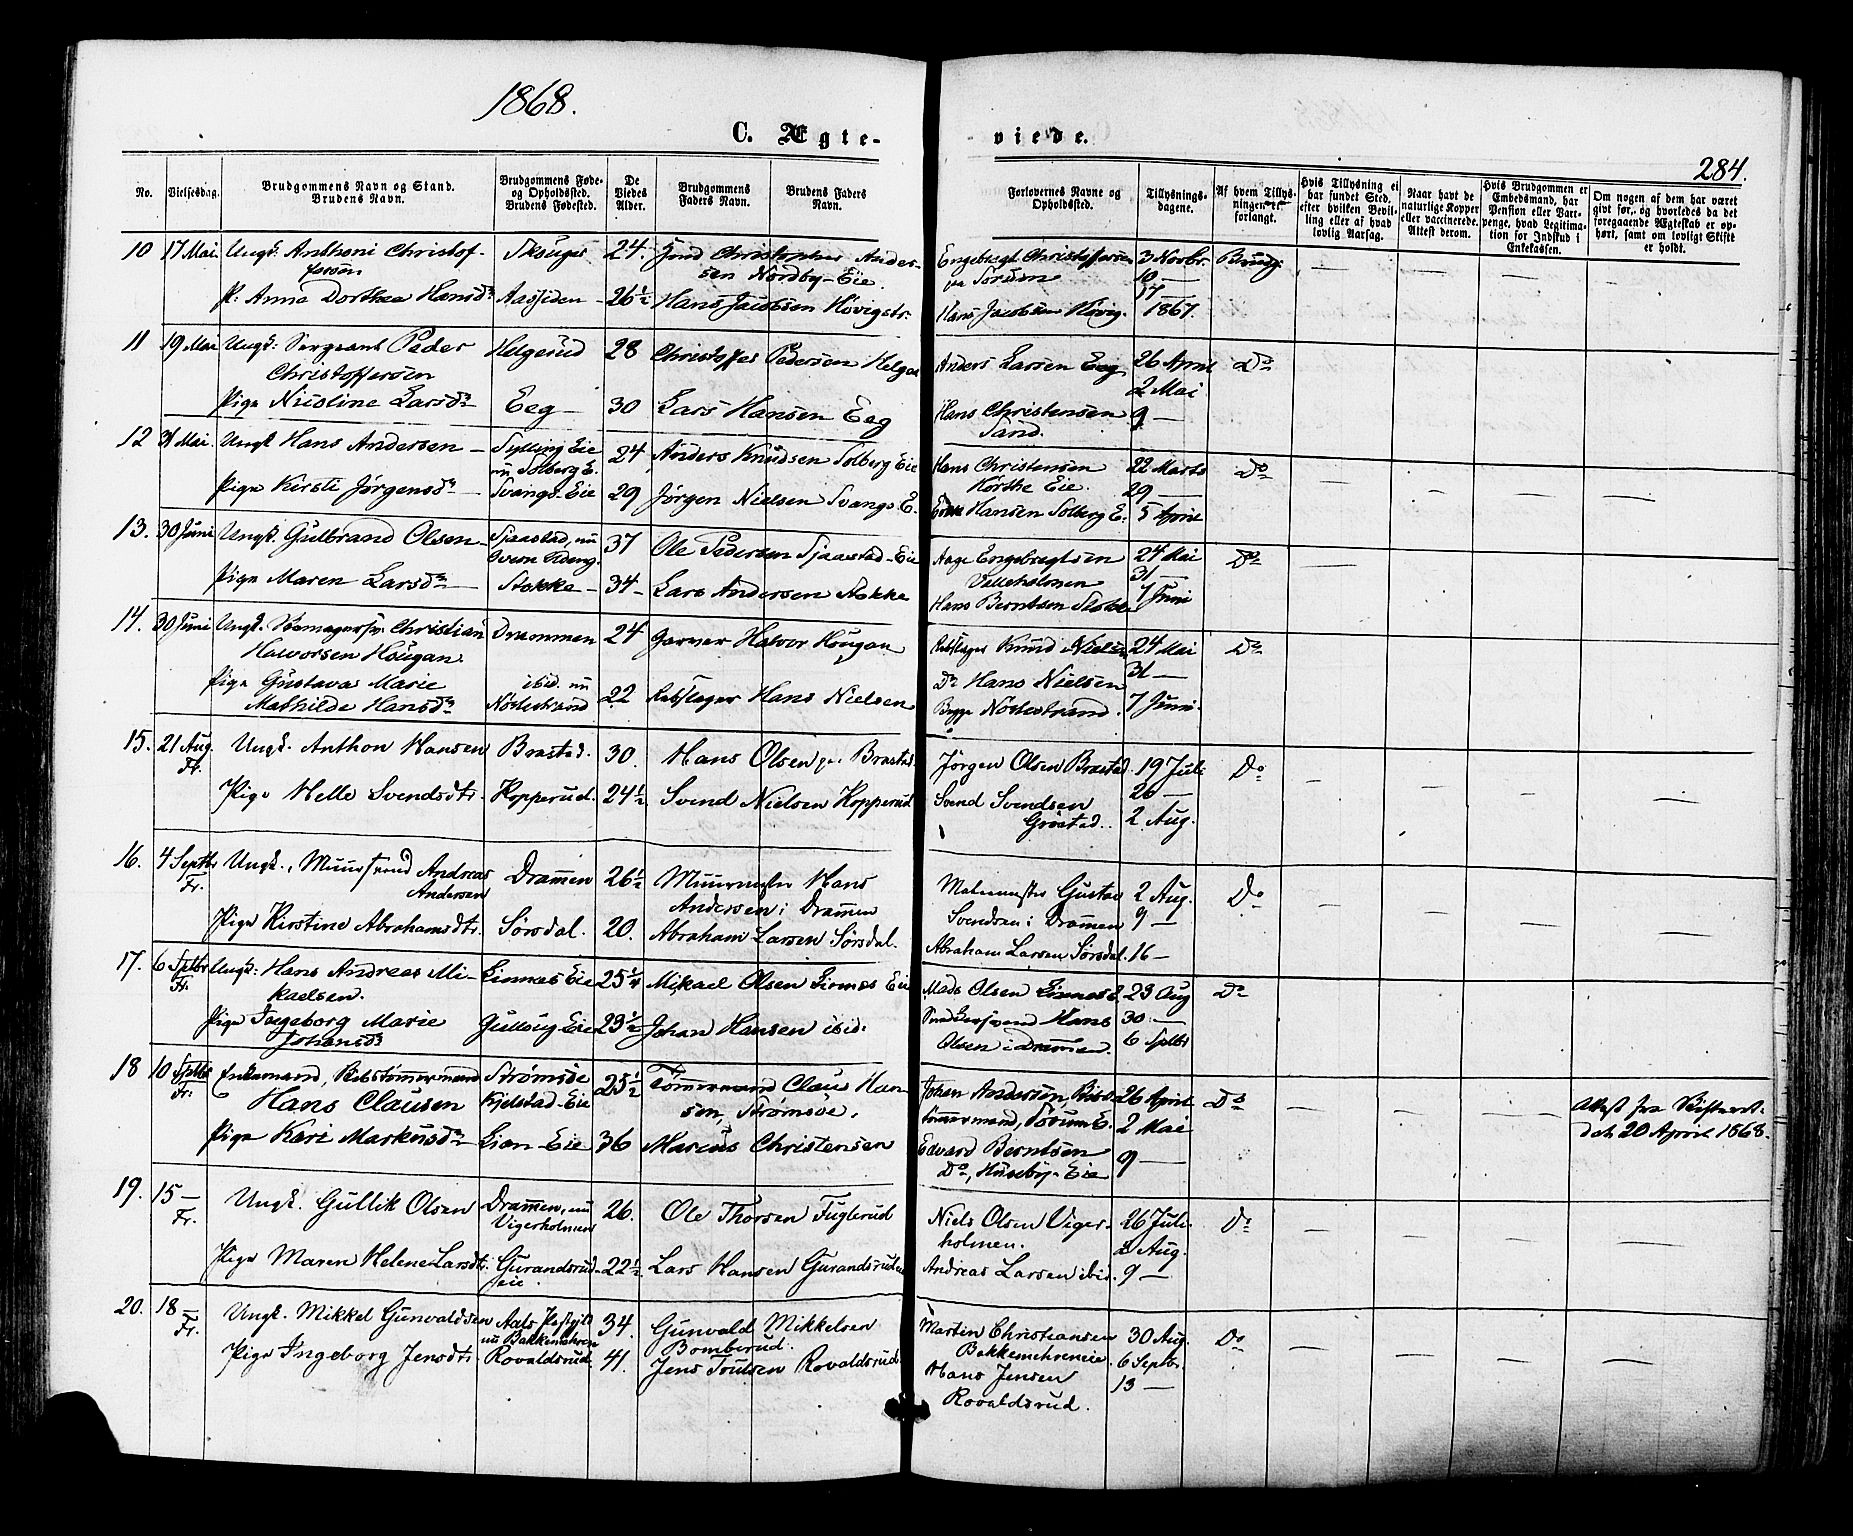 1868.
C. Ægte-
viede.
284.
No.
Vielsesdag.
Brudgommens Navn og Stand.
Brudens Navn.
Brudgommens Føde-
og Opholdssted.
Brudens Fødested.
De
Viedes
Alder.
Brudgommens
Faders Navn.
Brudens Faders
Navn.
Forlovernes Navne og
Opholdssted.
Tillysnings-
dagene.
Af hvem Tillys-
ningen er
forlangt.
Hvis Tillysning ei
har fundet Sted,
efter hvilken Bevil-
ling eller af hvad
lovlig Aarsag.
Naar havt de
naturlige Kopper
eller vaccinerede.
Attest derom.
Hvis Brudgommen er
Embedsmand, har
Pension eller Vart-
penge, hvad Legitima-
tion for Indskud i
Enkekassen.
Om nogen af dem har været
gift før, og hvorledes da det
foregaaende Ægteskab er op-
hørt, samt om lovligt Skifte
er holdt.
10 17 Mai. Ungk: Anthoni Christof-
fersen
Skouger 24.
Christopher Ander-
sen Nordby-Eie.
Engebregt Christoffersen
3 Novbr. Brudg.
10 —
P: Anna Dorthea Hansdr Aasfiden 26½ Hans Jacobsen Høvigstr:
Hans Jacobsen Høvig.
17 —
1867.
11 19 Mai Ungk: Sergeant Peder
Christoffersen
Helgerud 28 Christoffer Pedersen
Anders Larsen Eeg 26 April Do
2 Mai
Pige Nicoline Larsdr Eeg 30 Lars Hansen Eeg
Hans Christensen
Sand. 9 —
12 31 Mai. Ungk Hans Andersen Sylling Eie
nu Solberg E. 24 Anders Knudsen Solberg Eie
Hans Christensen
Eie. 22 Marts Do
29 —
Pige Kirsti Jørgensdr Svangs-Eie 29 Jørgen Nielsen Svangs E.
Hansen Solberg E. 5 April
13. 30 Juni Ungk. Gulbrand Olsen Sjaastad, nu
37 Ole Pedersen Sjaastad-Eie
Aage Engebregtsen
Valleholmen
24 Mai Do
31 —
Pige Maren Larsdr Stokke 34 Lars Andersen Stokke
Hans Berntsen Stokke 7 Juni
14. 30 Juni Ungk. Skomagersv. Christian
Halvorsen Hougan.
Drammen 24 Garver Halvor Hougan
Rebslager Knud Nielsen 24 Mai Do
31 —
Pige Gustava Marie
Mathilde Hansdr
ibid. nu
Nøstestrand 22 Rebslager Hans Nielsen
Do Hans Nielsen
Begge Nøstestrand. 7 Juni.
15. 21 Aug.
Fr.
Ungk. Anthon Hansen Brastad. 30. Hans Olsen Brastad.
Jørgen Olsen Brastad. 19 Juli Do
26 —
Pige Helle Svendsdtr. Hopperud. 24½ Svend Nielsen Hopperud
Svend Svendsen
Grøstad. 2 Aug.
16. 4 Septbr
Fr.
Ungk., Muursvend Andreas
Andersen
Dramen 26½ Muurmester Hans
Andersen i Dramen
Malermester Gustav
Svendsen i Dramen
2 Aug. Do
9 —
Pige Kirstine Abrahamsdtr. Sørsdal. 20. Abraham Larsen Sørsdal.
Abraham Larsen Sørsdal. 16 —
17. 6 Sptbr
Fr.
Ungk: Hans Andreas Mi-
kaelsen.
Linnes Eie 25¼ Mikael Olsen Linnes Eie
Mads Olsen Linnes E 23 Aug Do
Pige Ingeborg Marie
Johansdr
Gullaug Eie 23½ Johan Hansen ibid:
Hans
Olsen i Dramen. 30 —
6 Sptbr
18 10 Sptbr
Fr.
Enkemand, Skibstømmermand
Hans Clausen
Strømsøe
Kjelstad-Eie
25½ Tømmermand Claus Han-
sen, Strømsøe.
Johan Andersen Skibs-
tømmermand, Sørum E.
26 April Do
2 Mai
Attest fra Skifteret.
dat. 20 April 1868.
Pige Kari Markusdr Lian-Eie 36 Marcus Christensen
Edvard Berntsen
Do, Huseby-Eie 9 —
19. 15 —
Fr.
Ungk. Gullik Olsen Dramen, nu
Vigerholmen 26. Ole Thorsen Fuglerud
Niels Olsen Viger-
holmen. 26 Juli Do
2 Aug.
Pige Maren Helene Larsdtr. Gurandsrud-
eie. 22½ Lars Hansen Gurandsrudeie
Andreas Larsen ibid. 9 —
20. 18 —
Fr.
Ungk. Mikkel Gunvaldsen Aals Pr
nu Bakkemehreneie 34. Gunvald Mikkelsen
Bomberud.
Martin Christiansen
Bakkemehreneie
30 Aug. Do
6 Septbr.
Pige Ingeborg Jensdtr. Rovaldsrud. 41. Jens Toulsen Rovaldsrud.
Hans Jensen
Rovaldsrud. 13 —